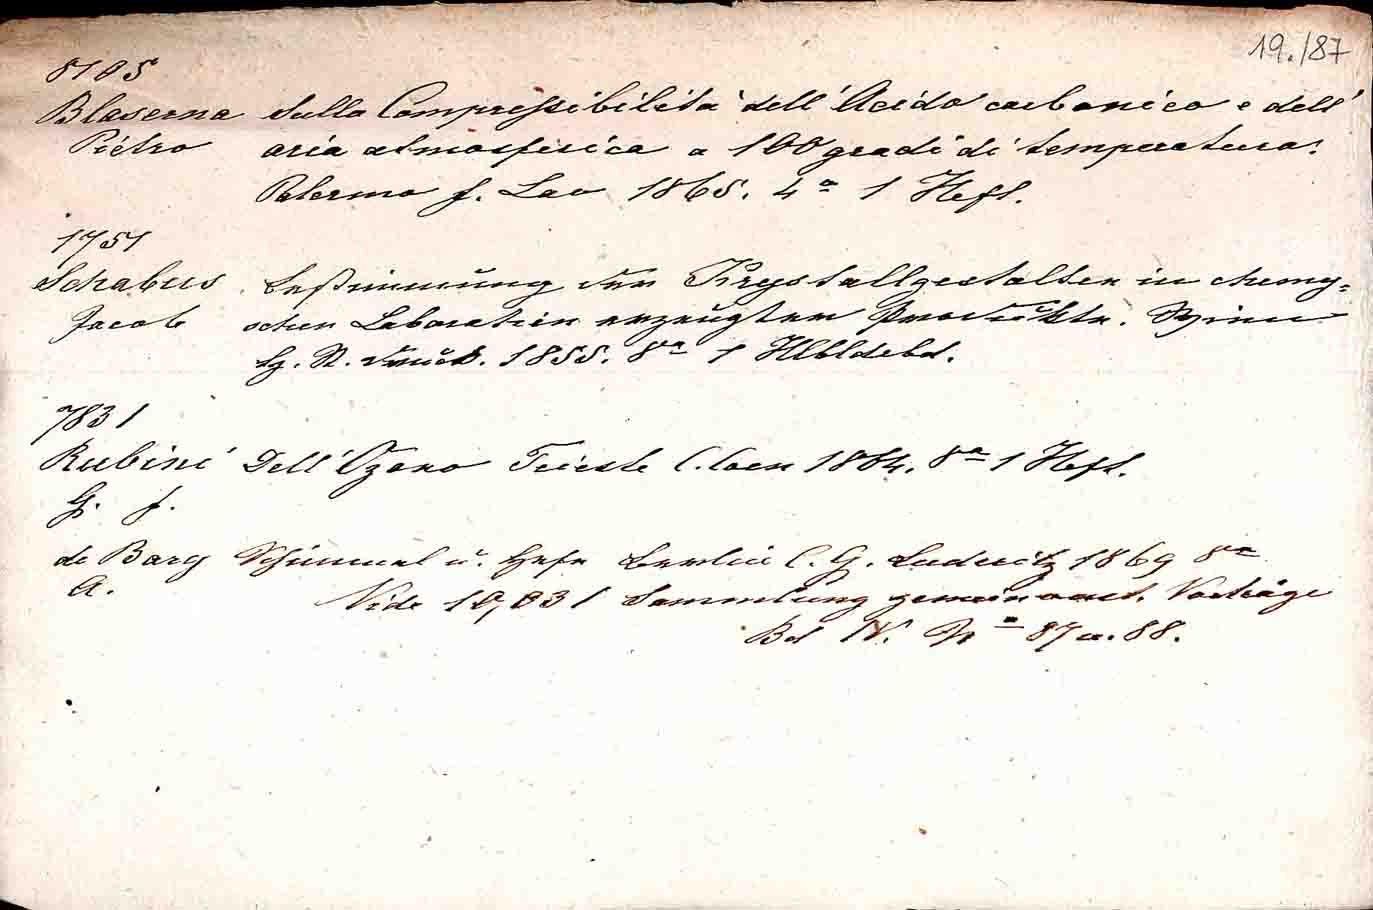 19./87
8185
Blaserna Sulla Compressibilità dell' Acido carbonico e dell'
Pietro aria atmosferica a 100 gradi di temperatura.
Palermo f. Lao 1865. 4° 1 Heft.
1751
Schabus Bestimmung der Krystallgestalten in chemi=
Jacob schen Laboratorien erzeugten Produkte. Wien
St. Druck. 1855. 8° 1 Hlbldrbd.
7831
Rubini Dell' Ozono Trieste C. Coen 1864. 8° 1 Heft.
G. f.
de Bary Schimmel u. Hefe Berlin C. G. Luderitz 1869 8°
A. Vide 10,031 Sammlung gemeinverst. Vorträge
Bd IV. No 87 u. 88.